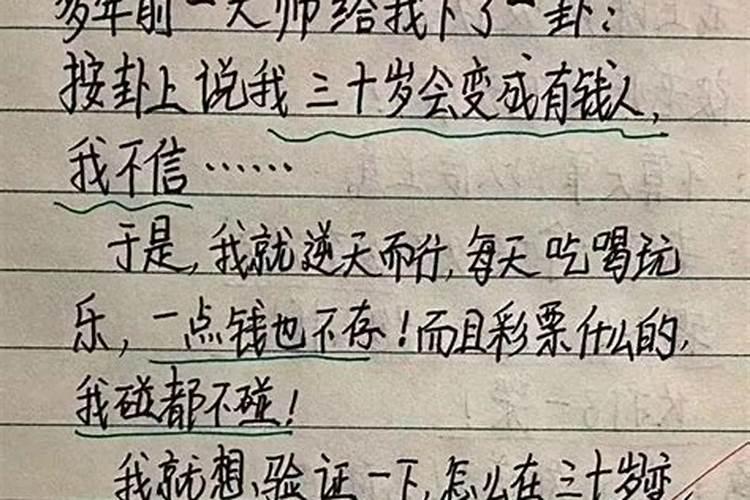 多年前一大师给我卜了一卦：
按卦上说我三十岁会变成有钱人，
我不信……
于是，我就逆天而行，每天吃喝玩
乐，一点钱也不存！而且彩票什么的，
我碰都不碰！
我就想验证一下，怎么在三十岁变